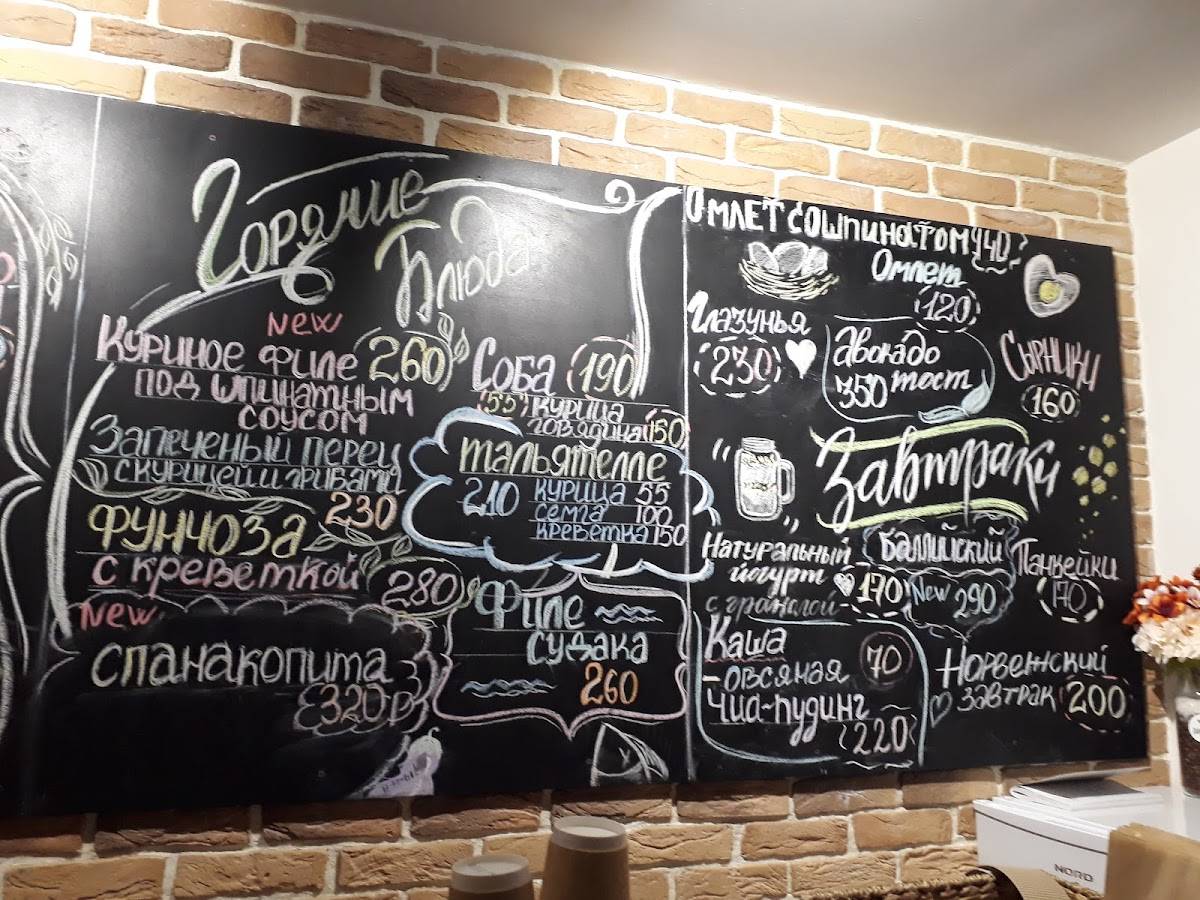 Горячие
Блюда
New
Куриное филе 260
под шпинатным
соусом
Запеченый перец
с курицей и грибами
230
Фунчоза
с креветкой 280
New
Спанакопита
320р
Соба 190
55 курица
говядина 150
Тальятелле
210 курица 55
семга 100
креветка 150
Филе
судака
260
Омлет со шпинатом 140
Омлет
120
Глазунья
230
Авокадо
350 тост
Сырники
160
Завтраки
Натуральный
йогурт
с гранолой 170
Баллийский
New 290
Панкейки
170
Каша
- овсяная 70
Чиа-пудинг
220
Норвежский
завтрак 200
NORD